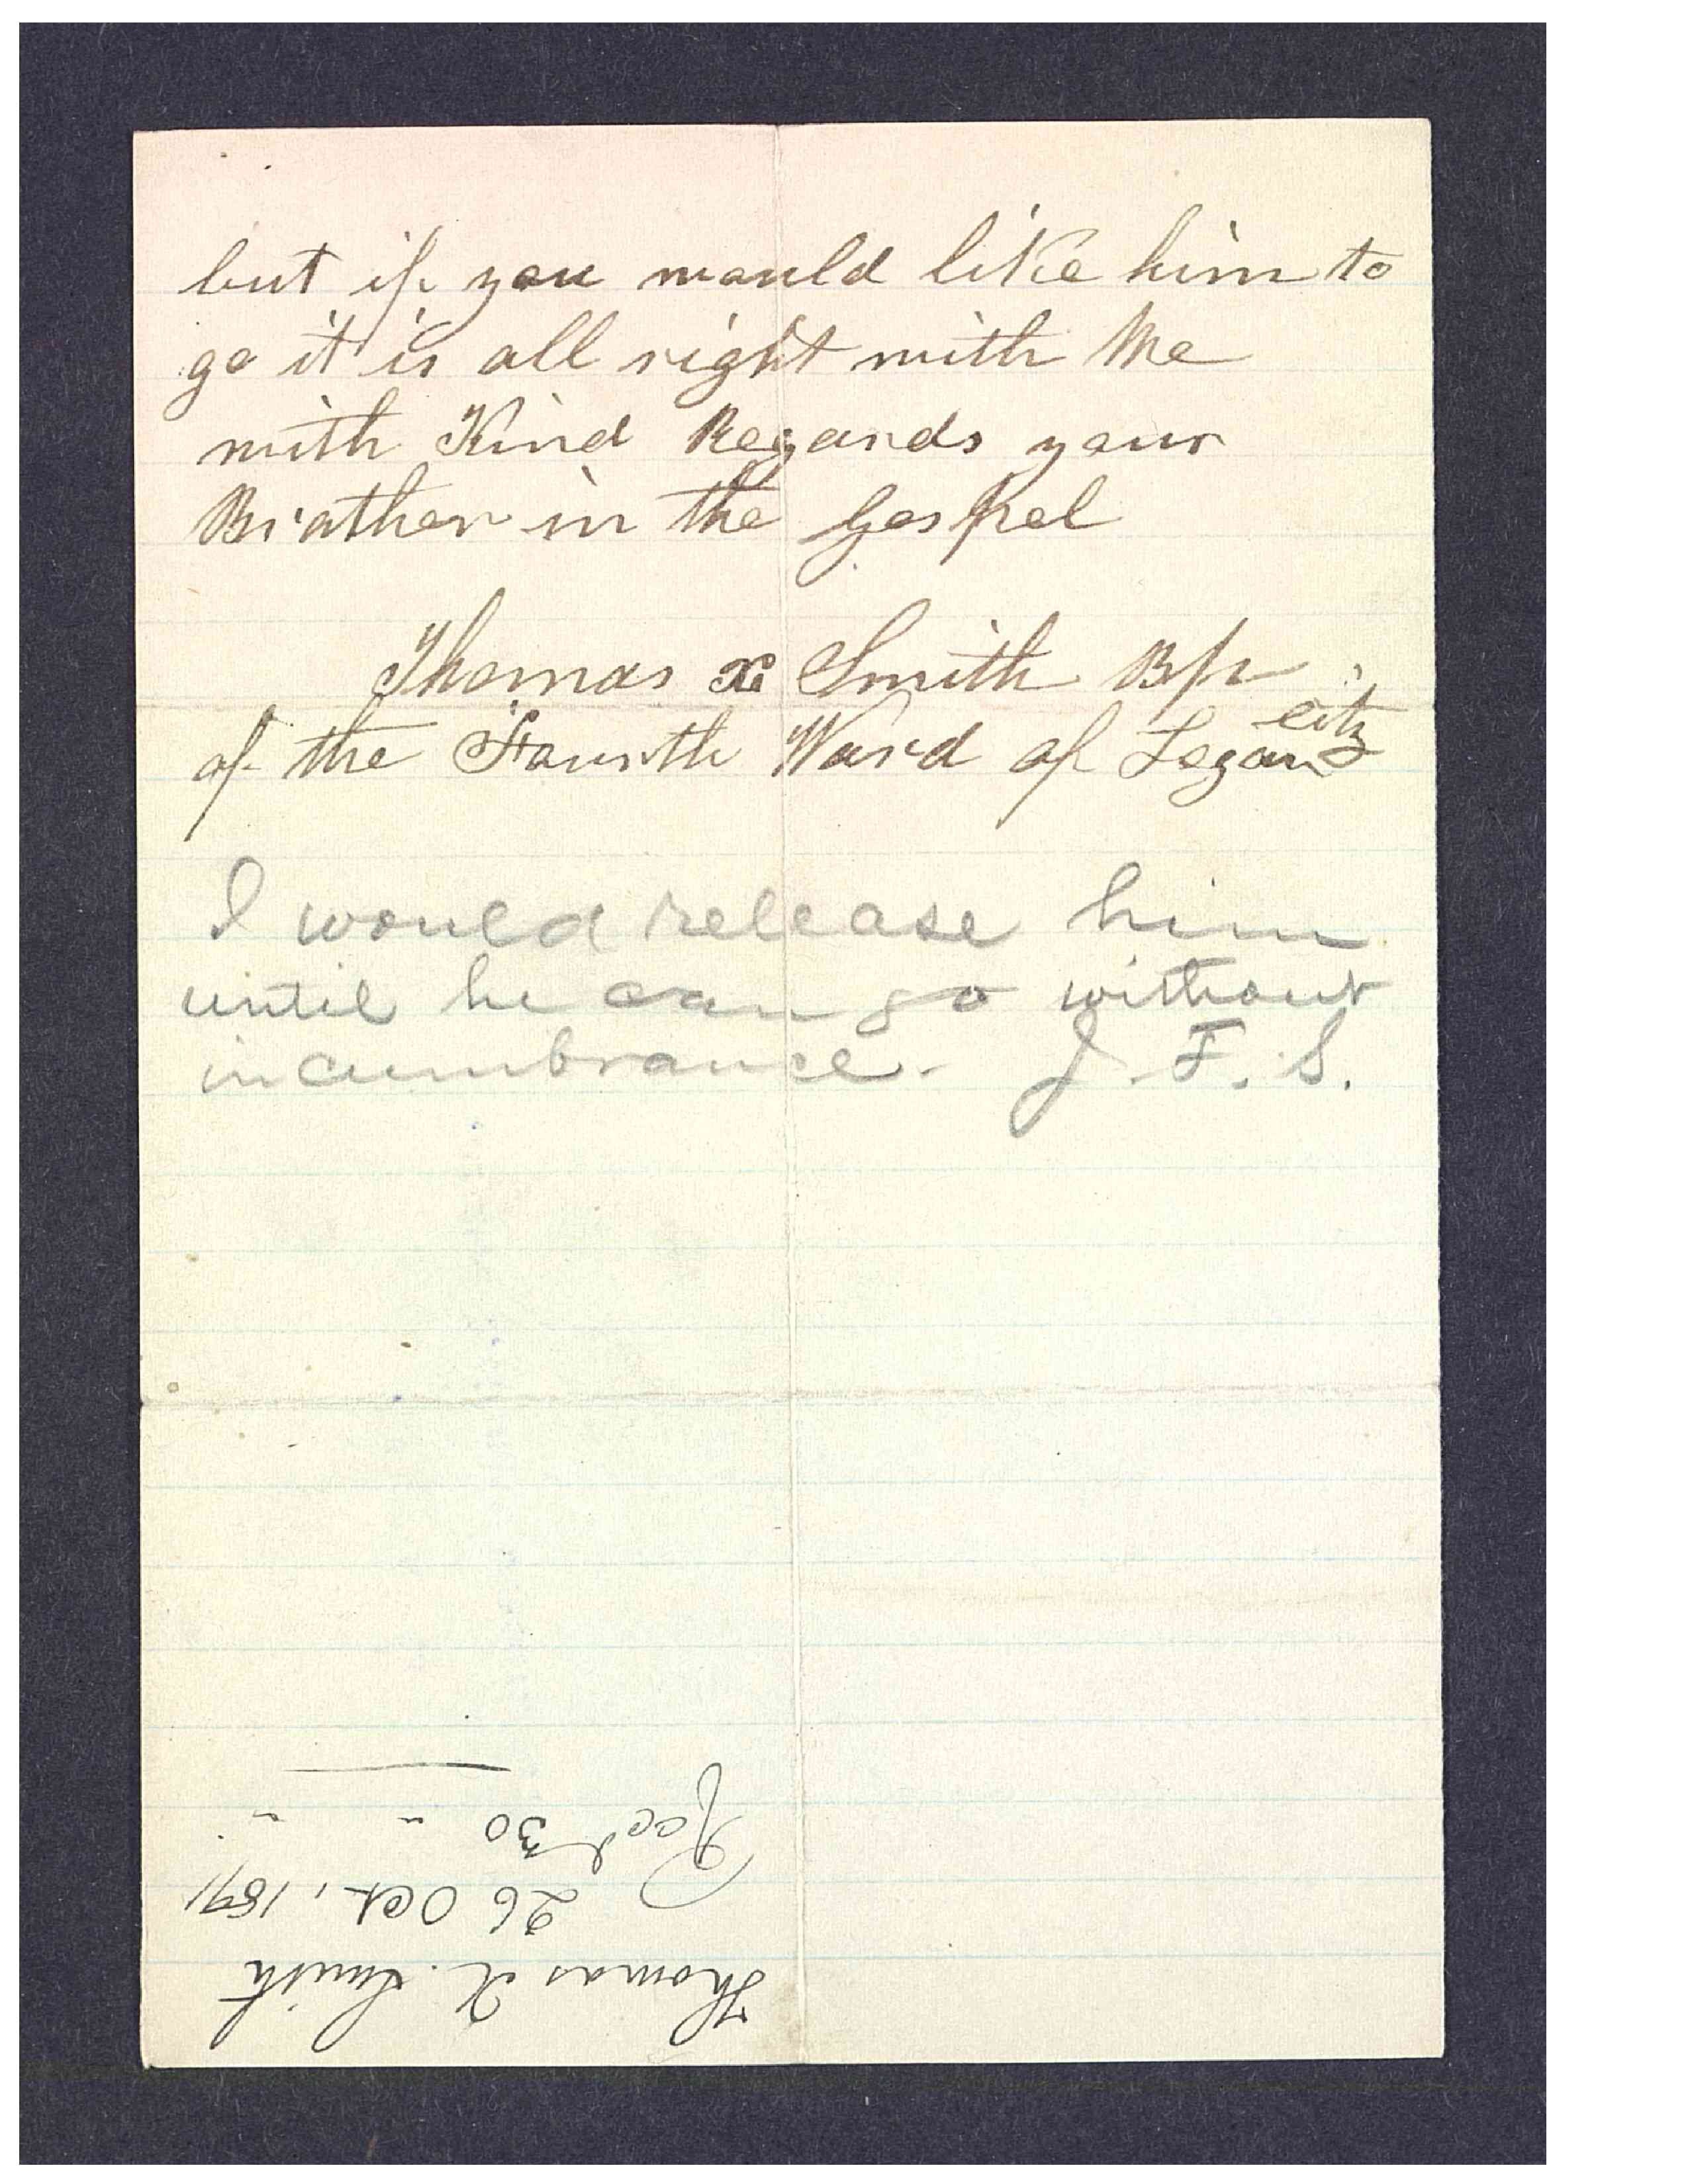 but if you would like him to
go it is all right with Me
with Kind Regards your
Brother in the Gospel
Thomas X Smith Bp
of the Fourth Ward of Logan city
I would release him
until he can go without
incumbrance. J. F. S.
Thomas X. Smith
26 Oct, 1891
Recd 30 " "